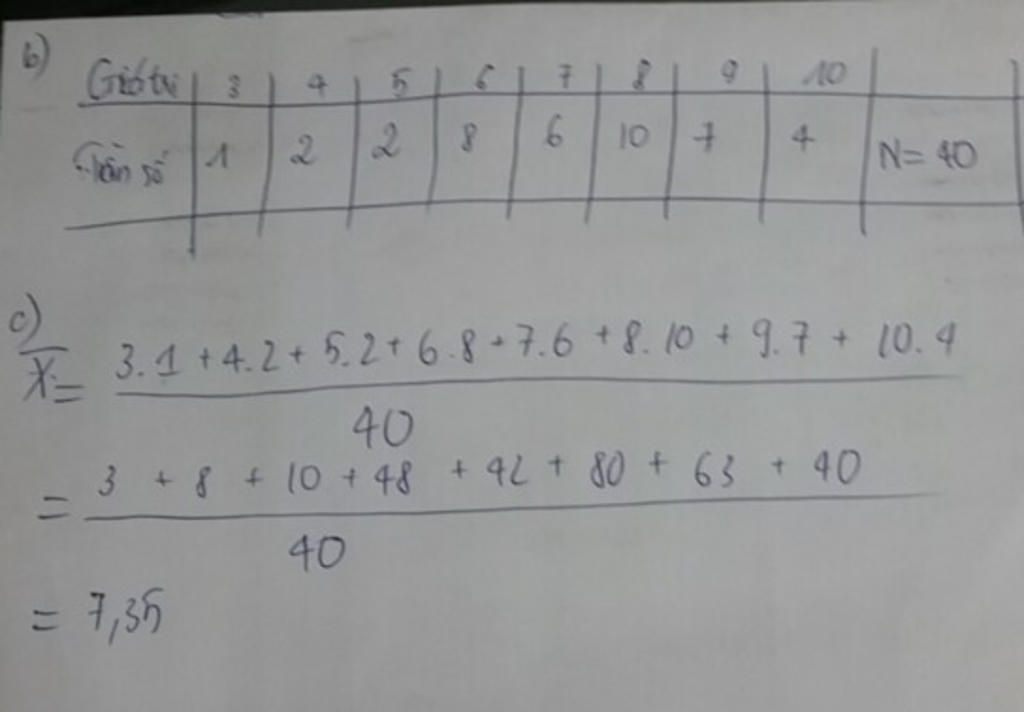 b)
Giá trị 3 4 5 6 7 8 9 10
Tần số 1 2 2 8 6 10 7 4 N= 40
c)
X̄ = 3.1 + 4.2 + 5.2 + 6.8 + 7.6 + 8.10 + 9.7 + 10.4
40
= 3 + 8 + 10 + 48 + 42 + 80 + 63 + 40
40
= 7,35